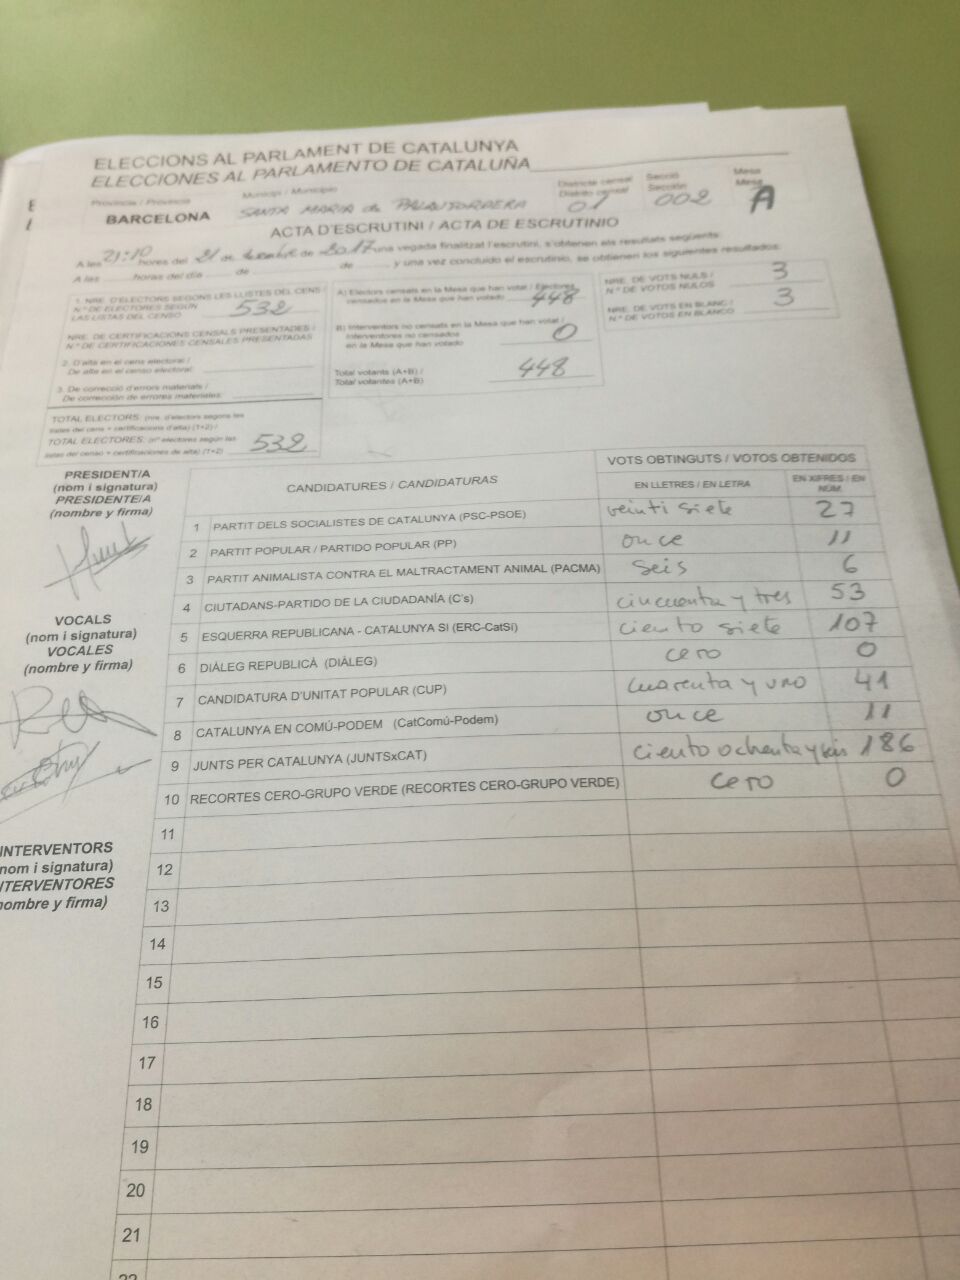 ELECCIONS AL PARLAMENT DE CATALUNYA
ELECCIONES AL PARLAMENTO DE CATALUÑA
Província / Provincia Municipi / Municipio Districte censal Secció Mesa
Distrito censal Sección Mesa
BARCELONA SANTA MARIA de PALAUTORDERA 01 002 A
ACTA D'ESCRUTINI / ACTA DE ESCRUTINIO
A les 21:10 hores del 21 de desembre de 2017 una vegada finalitzat l'escrutini, s'obtenen els resultats següents:
A las horas del día de de y una vez concluido el escrutinio, se obtienen los siguientes resultados:
1. NRE. D'ELECTORS SEGONS LES LLISTES DEL CENS /
N.º DE ELECTORES SEGÚN
LAS LISTAS DEL CENSO 532
NRE. DE CERTIFICACIONS CENSALS PRESENTADES /
N.º DE CERTIFICACIONES CENSALES PRESENTADAS
2. D'alta en el cens electoral /
De alta en el censo electoral:
3. De correcció d'errors materials /
De corrección de errores materiales:
TOTAL ELECTORS: (nre. d'electors segons les
llistes del cens + certificacions d'alta) (1+2) /
TOTAL ELECTORES: (nº electores según las
listas del censo + certificaciones de alta) (1+2) 532
A) Electors censats en la Mesa que han votat / Electores
censados en la Mesa que han votado 448
B) Interventors no censats en la Mesa que han votat /
Interventores no censados
en la Mesa que han votado 0
Total votants (A+B) /
Total votantes (A+B) 448
NRE. DE VOTS NULS /
N.º DE VOTOS NULOS 3
NRE. DE VOTS EN BLANC /
N.º DE VOTOS EN BLANCO 3
PRESIDENT/A
(nom i signatura)
PRESIDENTE/A
(nombre y firma)
VOCALS
(nom i signatura)
VOCALES
(nombre y firma)
INTERVENTORS
(nom i signatura)
INTERVENTORES
(nombre y firma)
CANDIDATURES / CANDIDATURAS
VOTS OBTINGUTS / VOTOS OBTENIDOS
EN LLETRES / EN LETRA
EN XIFRES / EN NÚM.
1 PARTIT DELS SOCIALISTES DE CATALUNYA (PSC-PSOE) veinti siete 27
2 PARTIT POPULAR / PARTIDO POPULAR (PP) once 11
3 PARTIT ANIMALISTA CONTRA EL MALTRACTAMENT ANIMAL (PACMA) seis 6
4 CIUTADANS-PARTIDO DE LA CIUDADANÍA (C's) cincuenta y tres 53
5 ESQUERRA REPUBLICANA - CATALUNYA SI (ERC-CatSí) ciento siete 107
6 DIÀLEG REPUBLICÀ (DIÀLEG) cero 0
7 CANDIDATURA D'UNITAT POPULAR (CUP) cuarenta y uno 41
8 CATALUNYA EN COMÚ-PODEM (CatComú-Podem) once 11
9 JUNTS PER CATALUNYA (JUNTSxCAT) ciento ochenta y seis 186
10 RECORTES CERO-GRUPO VERDE (RECORTES CERO-GRUPO VERDE) cero 0
11
12
13
14
15
16
17
18
19
20
21
22